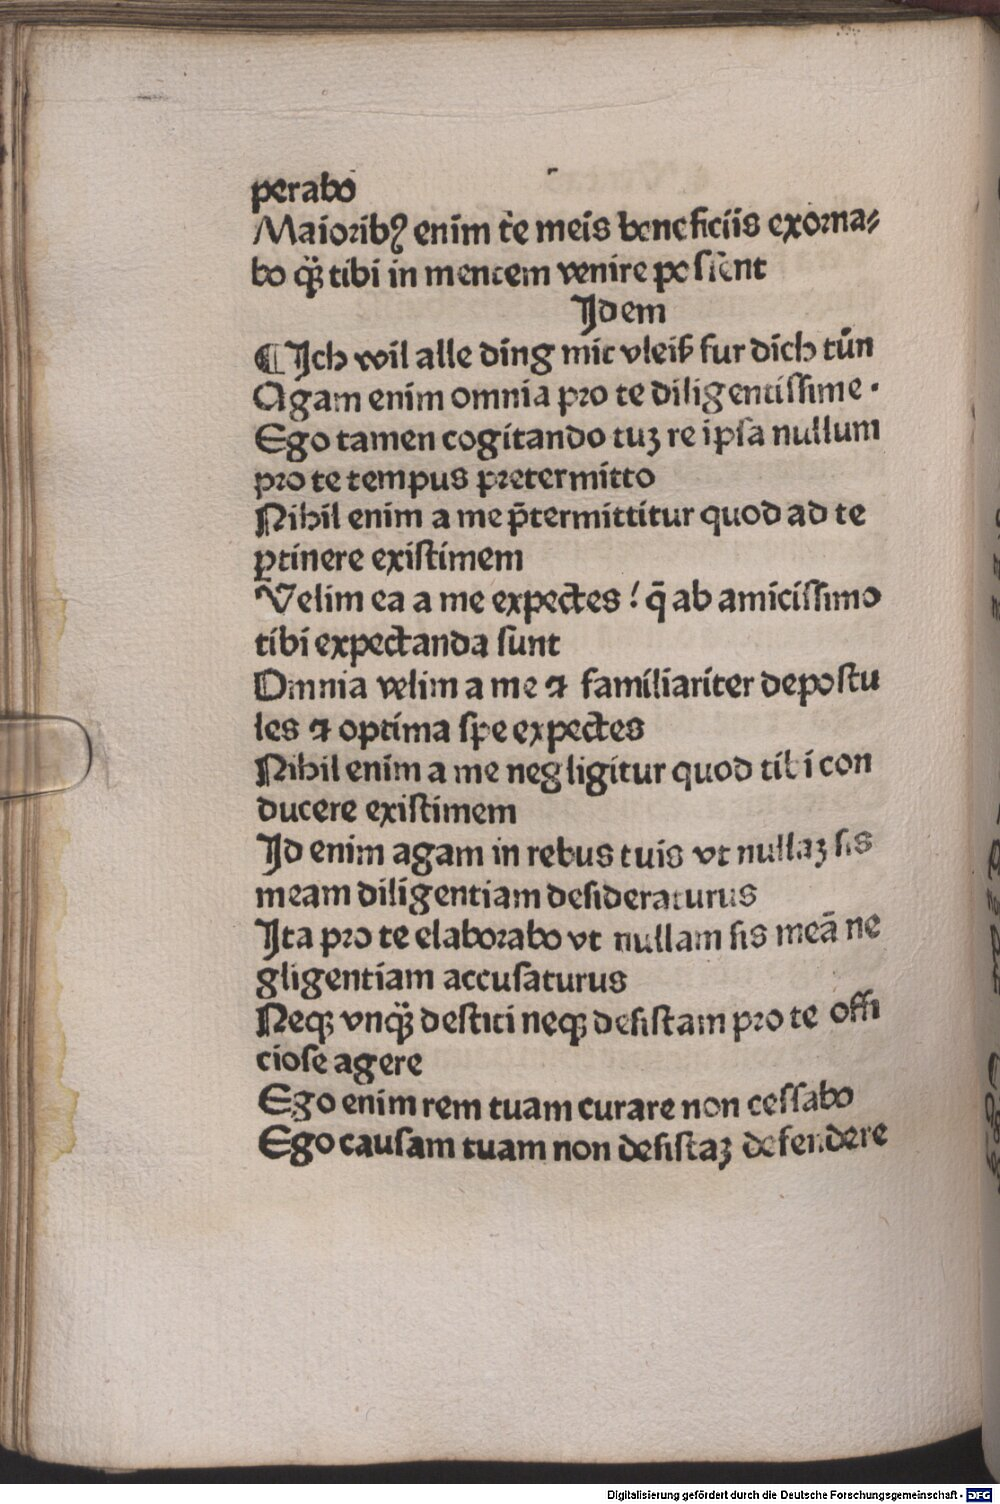 perabo
Maioribꝰ enim te meis beneficiis exorna⸗
bo qͣ̈ꝫ tibi in mentem venire possent
Idem
¶Ich wil alle ding mit vleiß fur dich tůn
Agam enim omnia pro te diligentissime ·
Ego tamen cogitando tuꝫ re ipsa nullum
pro te tempus pretermitto
Nihil enim a me p̄termittitur quod ad te
ꝑtinere existimem
Velim ea a me expectes ! q̄ ab amicissimo
tibi expectanda sunt
Omnia velim a me ⁊ familiariter depostu
les ⁊ optima spe expectes
Nihil enim a me negligitur quod tibi con
ducere existimem
Id enim agam in rebus tuis vt nullaꝫ sis
meam diligentiam desideraturus
Ita pro te elaborabo vt nullam sis meā ne
gligentiam accusaturus
Neqꝫ vnqͣ̈ꝫ destiti neqꝫ desistam pro te offi
ciose agere
Ego enim rem tuam curare non cessabo
Ego causam tuam non desistaꝫ defendere
Digitalisierung gefördert durch die Deutsche Forschungsgemeinschaft - DFG